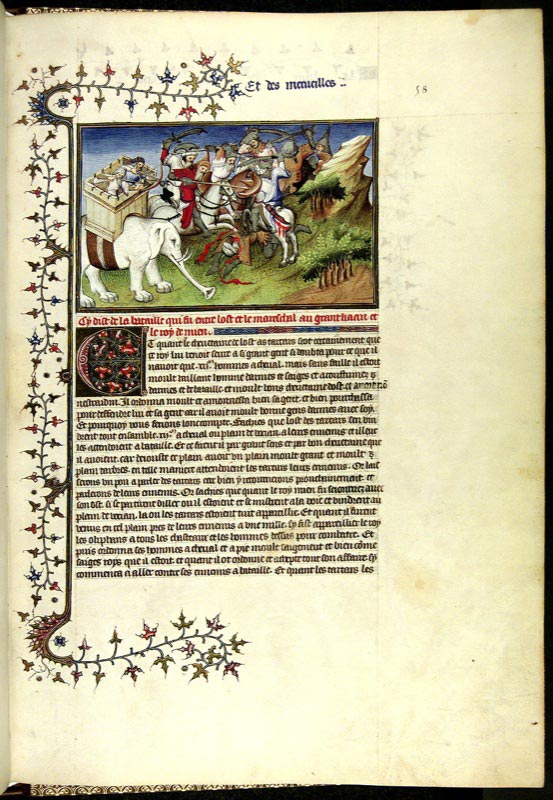 Et des merveilles ..
58
Cy dist de la bataille qui fu entre lost et le mareschal au grant kaan et
le roy de mien.
Et quant le chevetaine de lost as tartars scot certainement que
ce roy lui venoit seure a si grant gent si doubta pour ce que il
navoit que .xii.ᵐ hommes a cheval, mais sans faille il estoit
moult vaillant homme darmes et saiges et acoustumez
darmes et de bataille et moult bons chevetaine dost, et
Il ordonna moult et amonnesta bien sa gent, et bien pourchassa
pour deffendre lui et sa gent car il avoit moult bonne gens darmes avec soy.
Et pourquoy vous feroiie lonc compte. Sachies que lost des tartars sen
drent tout ensamble .xii.ᵐ a cheval ou plain de vocian, a leurs ennemis et illeuc
les attendoient a bataille. Et ce firent il par grant sens et par bon chevetaine que
il avoient. car dejouste ce plain avoit un plain moult grant et moult
plain darbres. en telle maniere attendoient les tartars leurs ennemis. Or lais
serons un pou a parler des tartars car bien y retournerons prouchainement. et
parlerons de leurs ennemis. Or sachies que quant le roy mien fu avec
son ost. si se partirent dillec ou il estoient et se mistrent a la voie et vindrent au
plain de vocian. la ou les tartars estoient tuit appareillie. Et quant il furent
venus en cel plain pres de leurs ennemis a une mille. sy fist appareillier le roy
les oliphans a tous les chasteaux et les hommes dessus pour combatre. Et
puis ordonna ses hommes a cheval et a pie moult saigement et bien come
saiges roys que il estoit. et quant il ot ordonne et tout son affaire. sy
commenca a aller contre ses ennemis a bataille. Et quant les tartars les